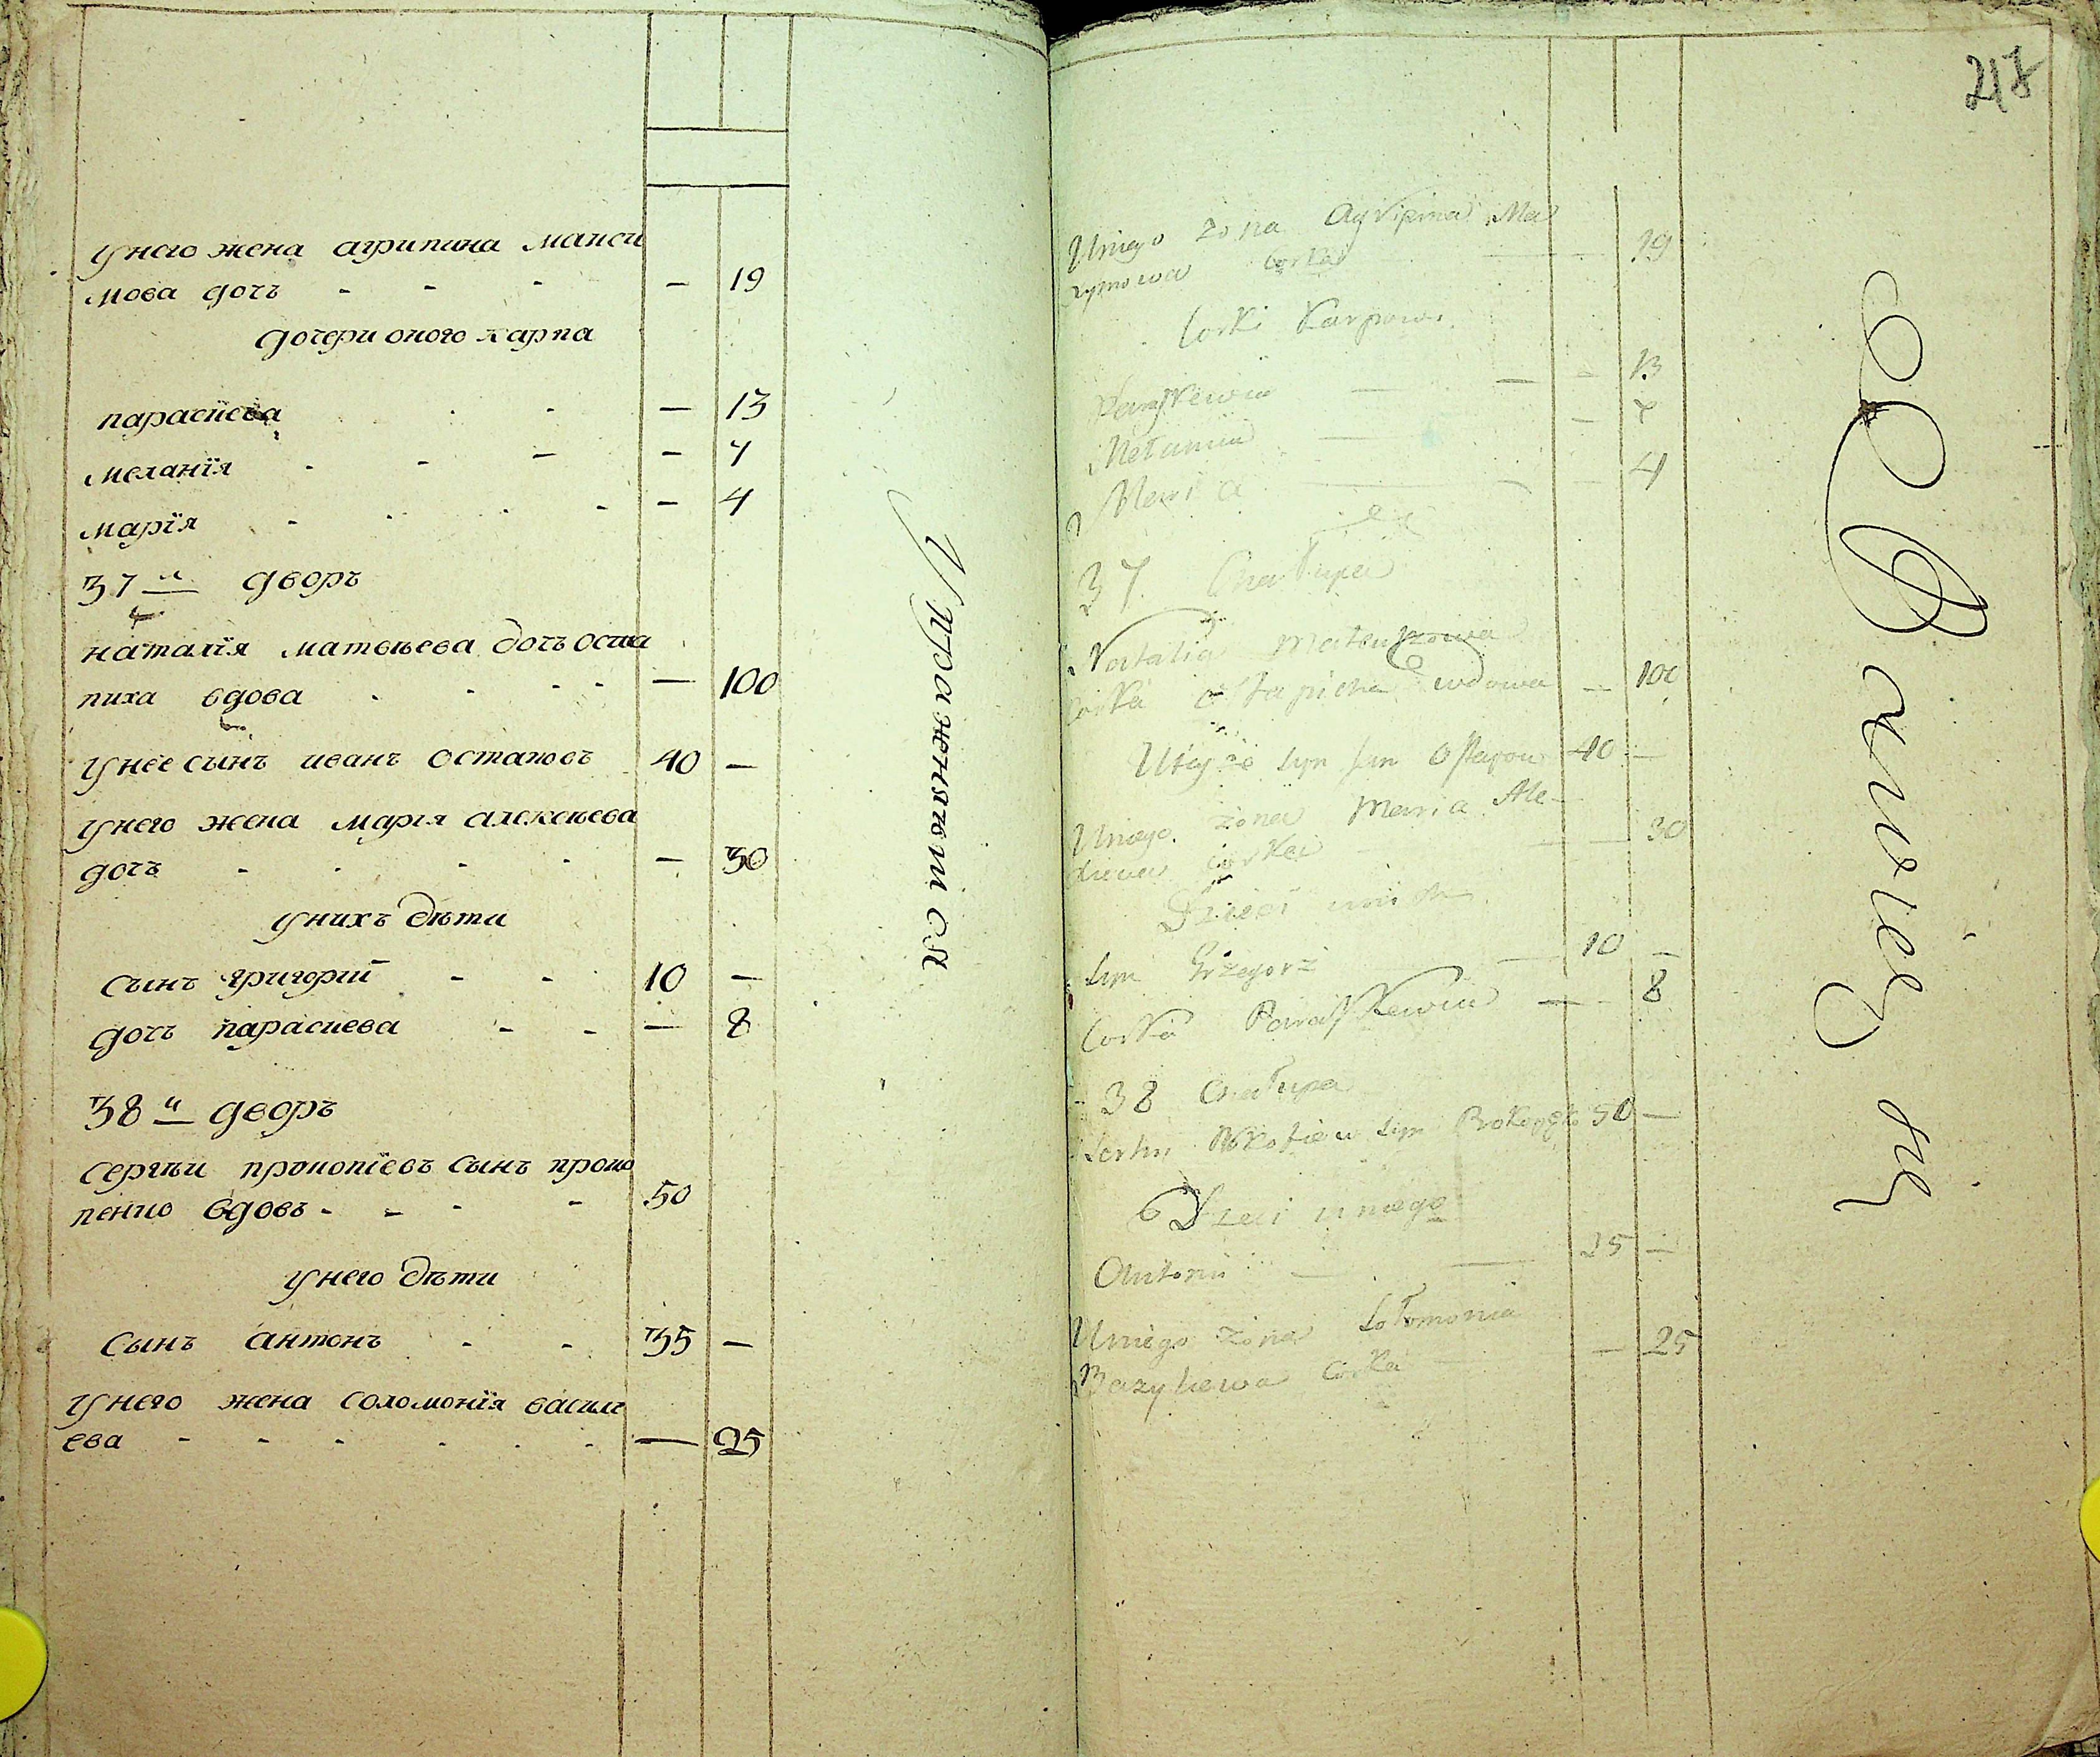 у него жена агрипина макси
мова дочъ - - - — 19
дочери оного карпа
параскева — 13
меланїя - - — — 7
марїя - - - - — 4
37й дворъ
наталїя матвѣева дочъ оста
пиха вдова - - - — 100
у нее сынъ иванъ остаповъ 40 —
у него жена марїя алексѣева
дочъ - - - - — 30
у нихъ дѣти
сынъ григорїй - - 10 —
дочъ параскева - - — 8
38й дворъ
сергѣи прокопїевъ сынъ проко
пенко вдовъ - - - - 50
у него дѣти
сынъ антонъ - - 35 —
у него жена соломонїя василе
ева - - - - - - — 25
Упражняютися
218
U niego żona Agripina Ma
xymowa Corka — 19
Corki Karpowe
Paraskewia — — - 13
Melania — — 7
Maria — — - 4
37 Chałupa
Natalia
Corka Ostapicha wdowa — 100
syn Jan Ostapow 40 —
U niego żona Maria Ale-
Corka — — 30
Dzieci u nich
Syn Grzegorz — 10 —
Corka Paraskewia — - 8
38 Chałupa
syn 50 —
Dzieci u niego
Antoni — — 25 —
U niego żona Sołomonia
Bazyliewa Corka — — 25